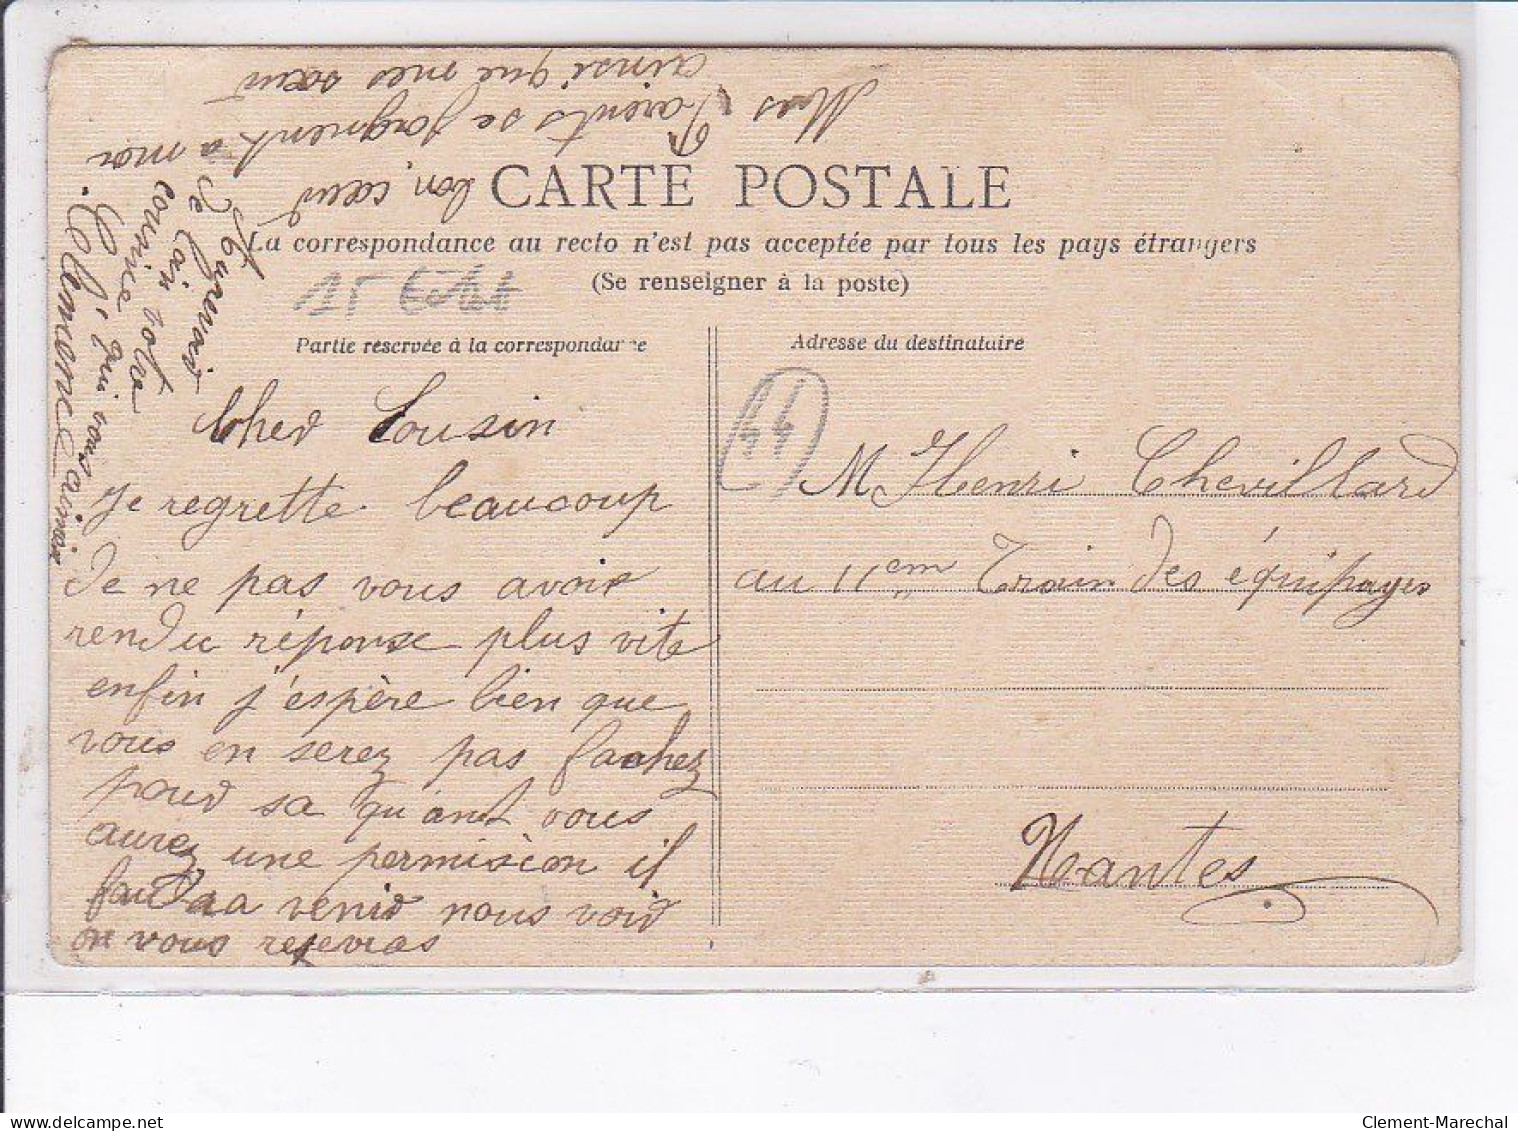 CARTE POSTALE
La correspondance au recto n'est pas acceptée par tous les pays étrangers
(Se renseigner à la poste)
15
Partie réservée à la correspondance
Adresse du destinataire
44
Cher Cousin
Je regrette beaucoup
de ne pas vous avoir
rendu réponse plus vite
enfin j'espère bien que
vous en serez pas fachez
pour sa qu'ant vous
aurez une permision il
faudra venir nous voir
on vous resevras
bon cœur
Mes Parents se joignent a moi
ainsi que mes sœur
Aurevoir
de loin votre
cousine
qui vous aime
Clémence
M Henri Chevillard
au 11em Train des équipages
Nantes
Clement-Marechal